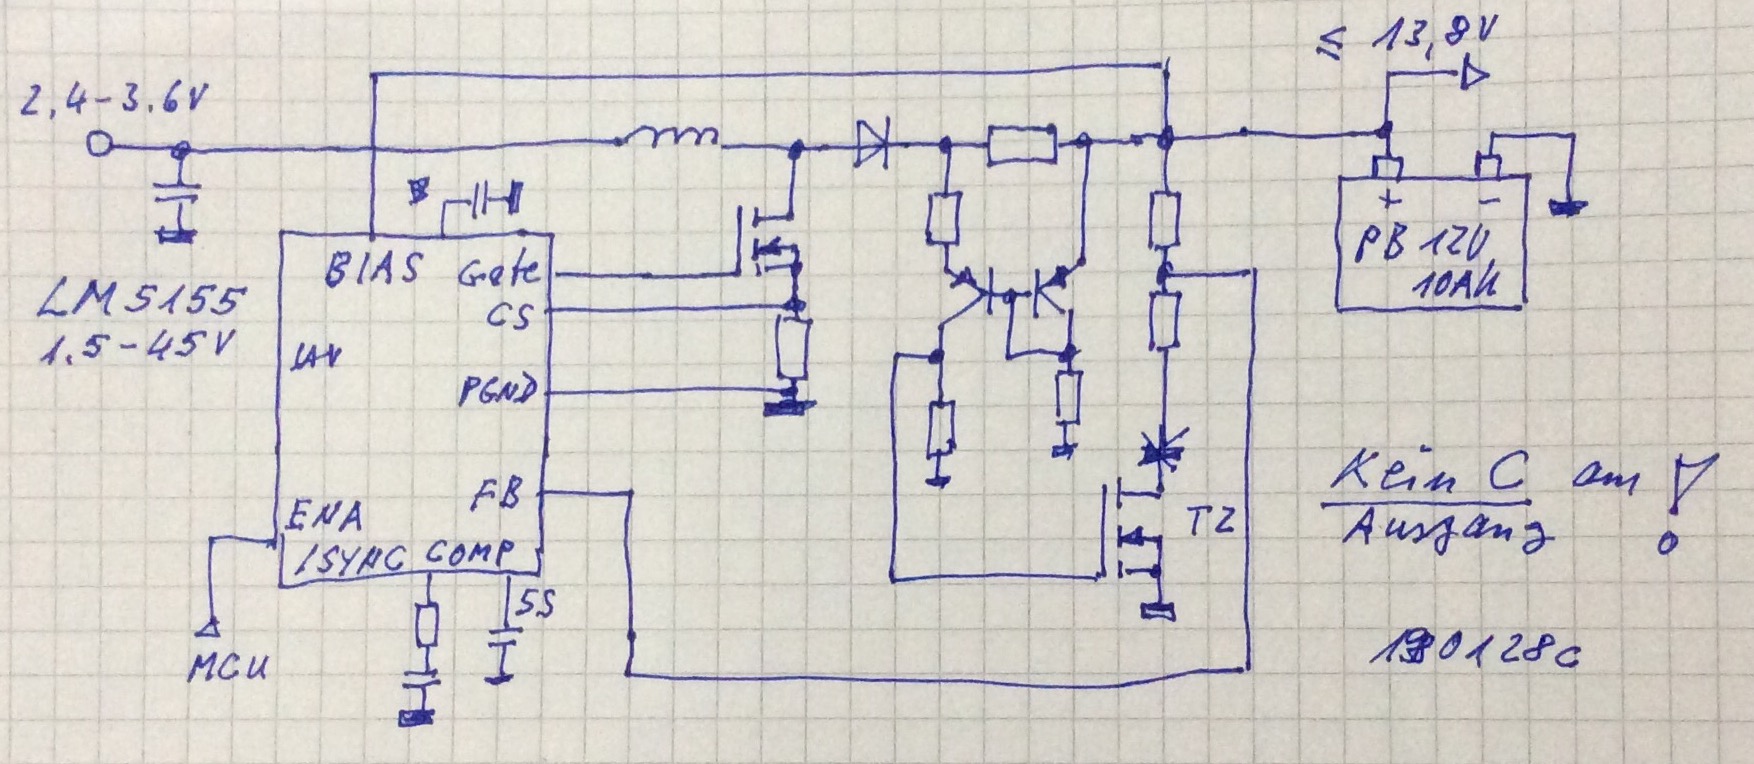 ≤ 13,8V
2,4-3.6V
+ -
PB 12V,
10Ah
BIAS Gate
LM5155
CS
1.5-45V
PGND
FB
Kein C am !
Ausgang
T2
ENA
/SYNC COMP
SS
MCU